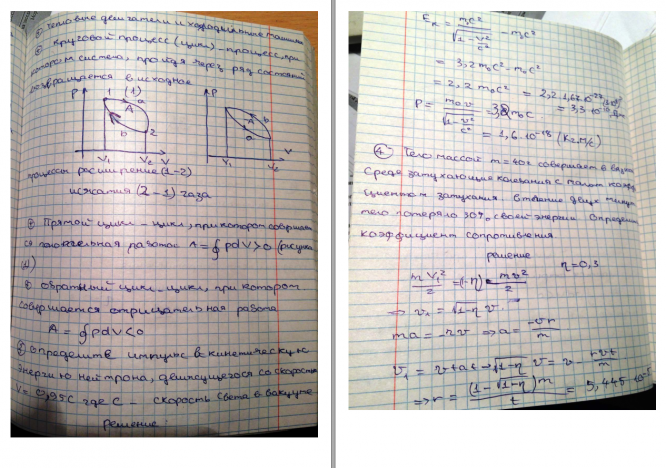 ① Тепловые двигатели и холодильные машины
② Круговой процесс (цикл) – процесс, при
котором система, пройдя через ряд состояний
возвращается в исходное
P 1 (1) a
A
b 2
V₁ V₂ V
P
b
A
a
V₁ V₂ V
процессы расширение (1-2)
и сжатия (2-1) газа
③ Прямой цикл – цикл, при котором совершает
ся положительная работа A = ∮pdV>0 (рисунка
(1)
④ обратный цикл – цикл, при котором
совершается отрицательная работа
A = ∮pdV<0
определите импульс в кинетическую
энергию нейтрона, движущегося со скоростью
V= 0,95c где c – скорость света в вакууме
решение
Eк = m₀c² / √(1-V²/c²) - m₀c²
= 3,2 m₀c² - m₀c²
= 2,2 m₀c² = 2,2·1,67·10⁻²⁷
P = m₀v / √(1-v²/c²) = m₀c = 3,3·10⁻¹⁰ Дж
= 1,6·10⁻¹⁸ (кг.м/с)
④ Тело массой m = 40г совершает в вязкой
среде затухающие колебания с малым коэфф
циентом затухания. В течение двух минут
тело потеряло 30% своей энергии. Определить
коэффициент сопротивления.
решение η=0,3
mV₁²/2 = (1-η) mv²/2
⇒ v₁ = √(1-η) v
ma = -rv ⇒ a = -vr/m
v₁ = v+at → √(1-η) v = v - rvt/m
⇒ r = (1-√(1-η))m / t = 5,445·10⁻⁵